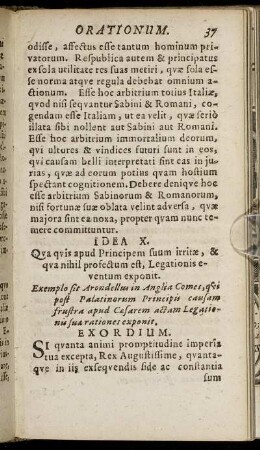 ORATIONUM. 37
odisse, affectus esse tantum hominum pri-
vatorum. Respublica autem & principatus
ex sola utilitate res suas metiri, quæ sola es-
se norma atque regula debebat omnium a-
ctionum. Esse hoc arbitrium totius Italiæ,
quod nisi sequantur Sabini & Romani, co-
gendam esse Italiam, ut ea velit, quæ seriò
illata sibi nollent aut Sabini aut Romani.
Esse hoc arbitrium immortalium deorum,
qui ultores & vindices futuri sunt in eos,
qui causam belli interpretati sint cas in ju-
rias, quæ ad eorum potius quam hostium
spectant cognitionem. Debere denique hoc
esse arbitrium Sabinorum & Romanorum,
nisi fortunæ suæ oblata velint adversa, quæ
majora sint ea noxa, propter quam nunc te-
mere committuntur.
IDEA X.
Qva quis apud Principem suum irritæ, &
qua nihil profectum est, Legationis e-
ventum exponit.
Exemplo sit Arondellius in Anglia Comes, qvi
post Palatinorum Principis causam
frustra apud Cæsarem actam Legatio-
nis suæ rationes exponit.
EXORDIUM.
SI quanta animi promptitudine imperia
tua excepta, Rex Augustissime, quanta-
que in iis exsequendis fide ac constantia
sum